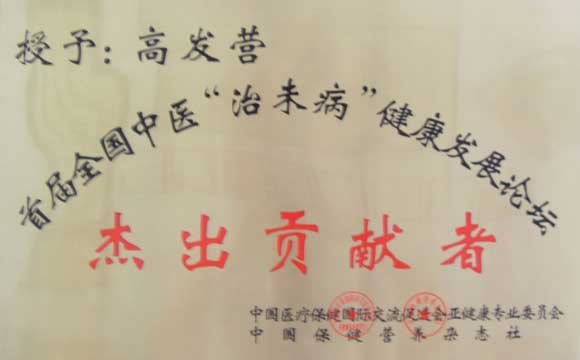 授予：高发营
首届全国中医“治未病”健康发展论坛
杰出贡献者
中国医疗保健国际交流促进会亚健康专业委员会
中国保健营养杂志社